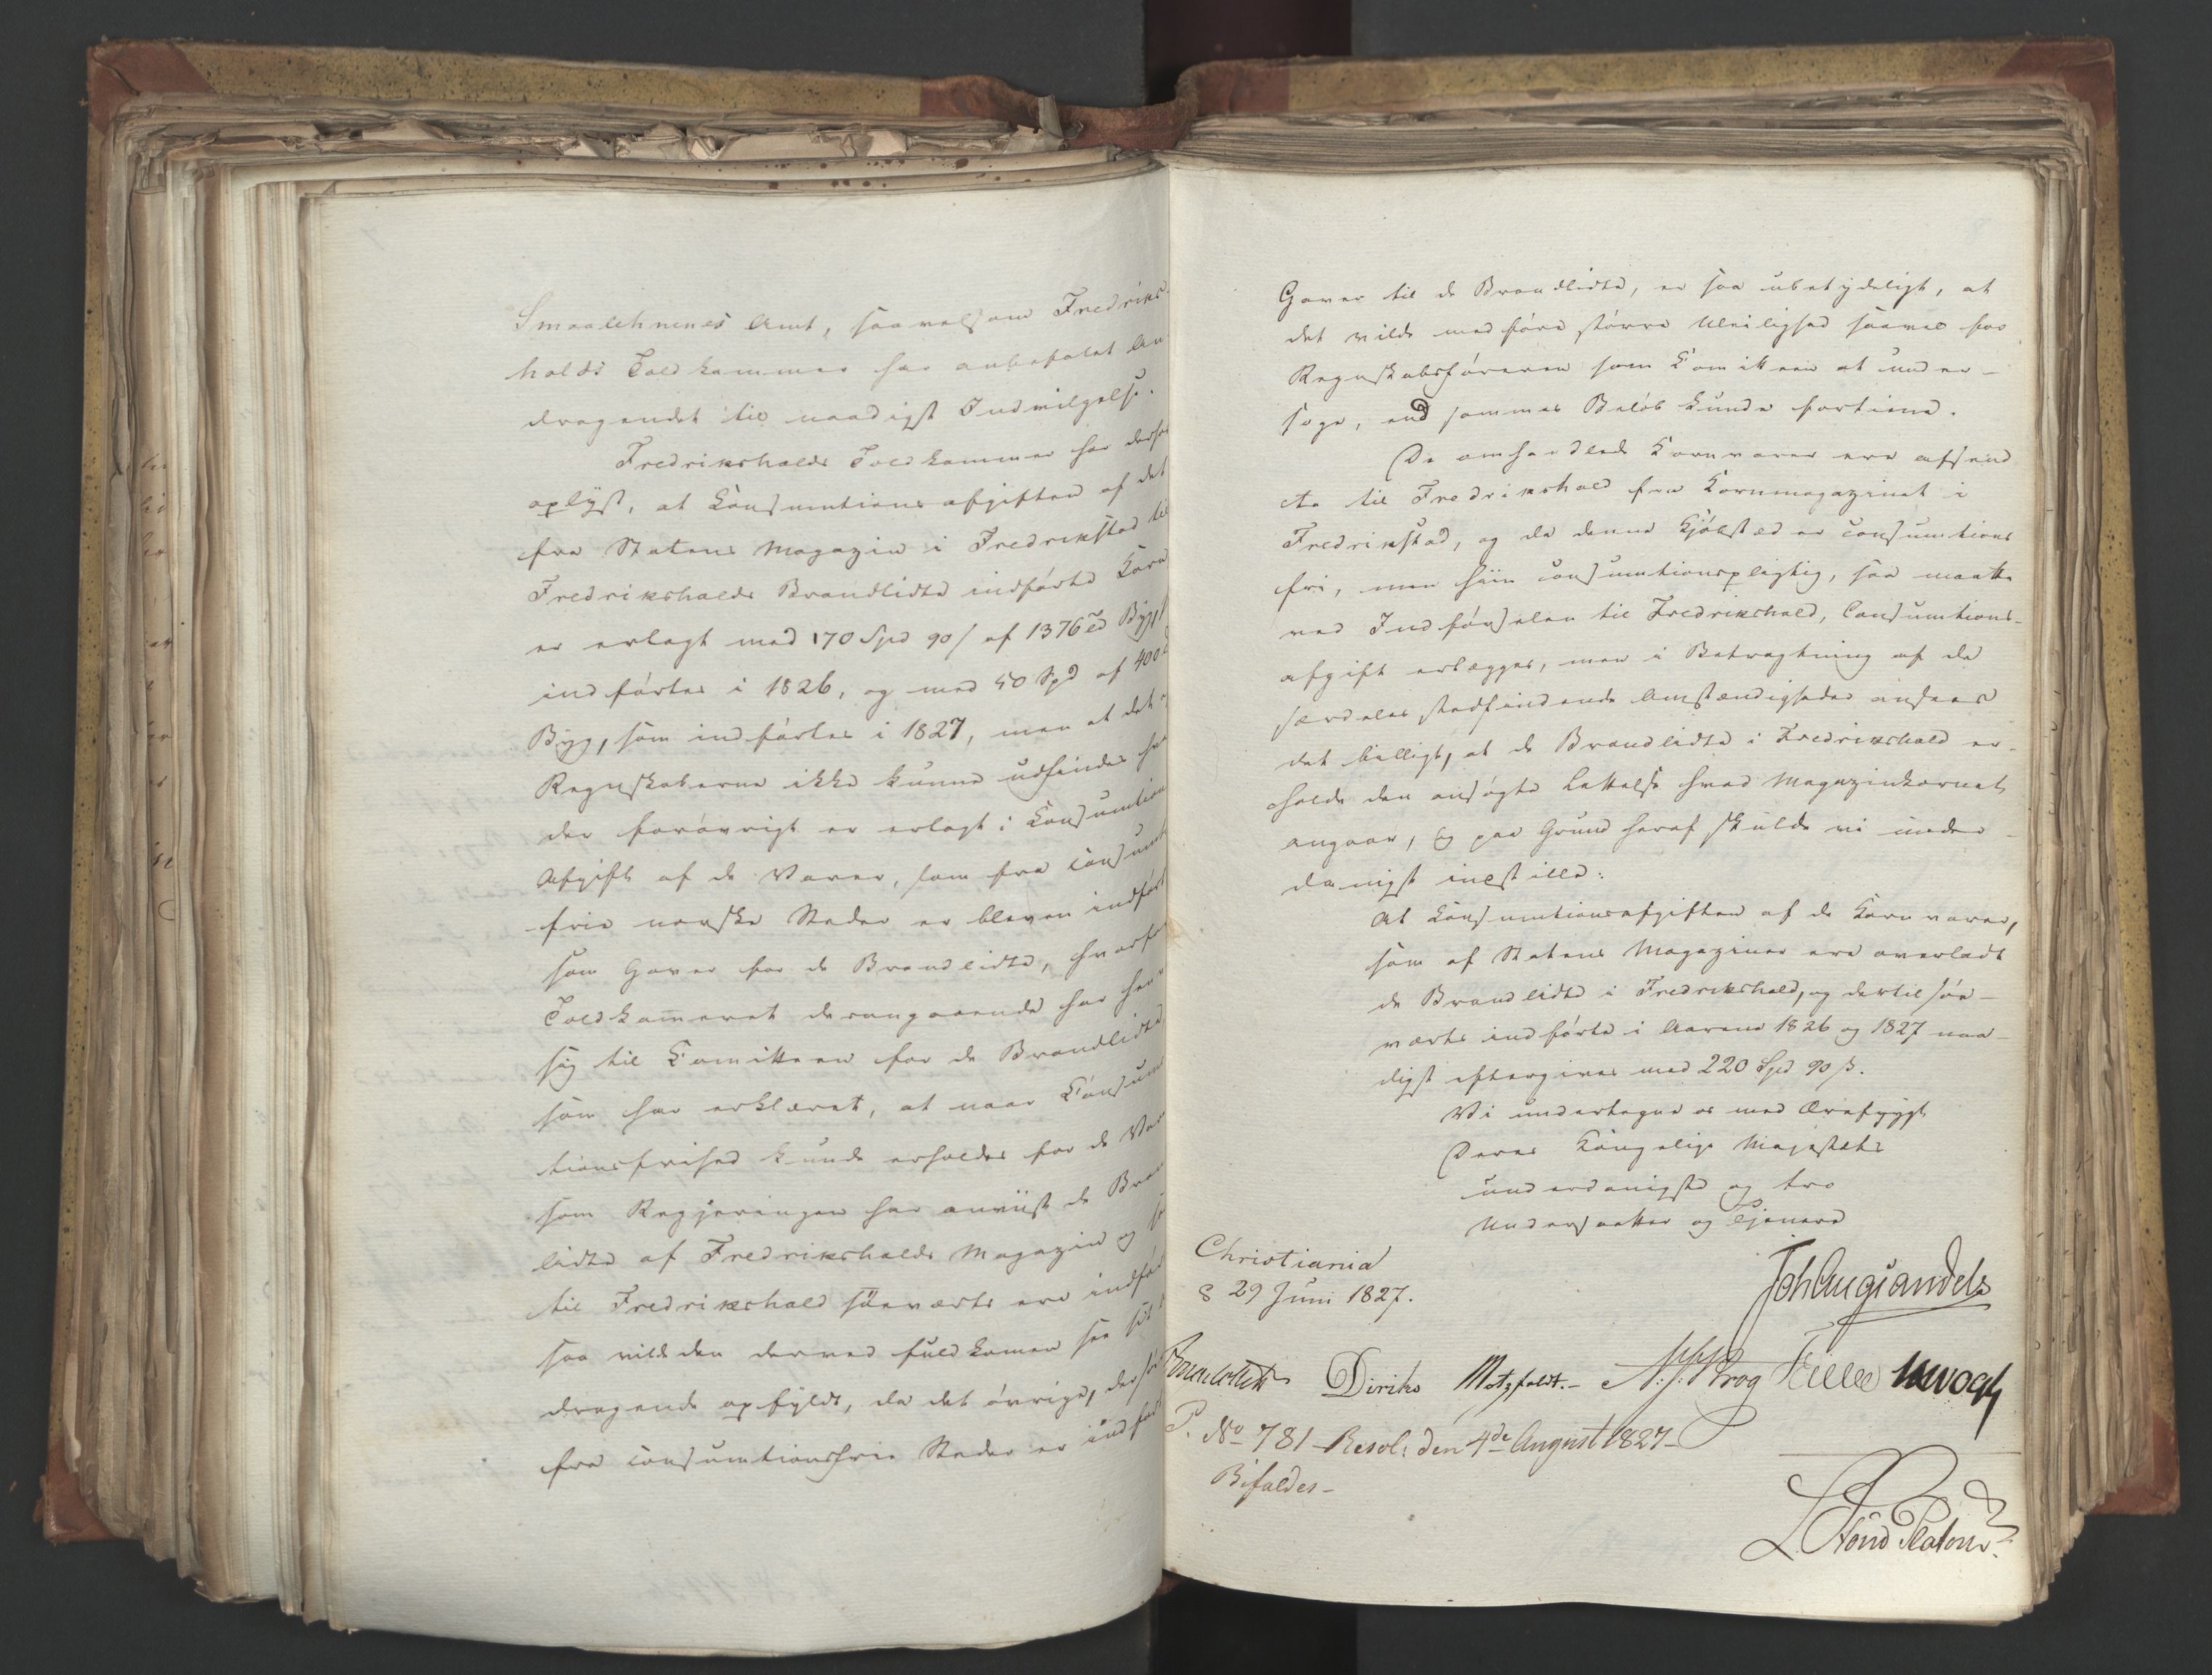 Smaalehnenes Amt, saavelsom Fredriks-
halds Toldkammer har anbefalet An-
dragendet til naadigst Indvilgelse.
Fredrikshalds Toldkammer har derhos
oplyst, at Consumtionsafgiften af det
fra Statens Magazin i Fredrikstad til
Fredrikshalds Brandlidte indførte Korn
er erlagt med 170 Spd 90 s af 1376 Td Byg
indførtes i 1826, og med 50 Spd af 400
Byg, som indførtes i 1827, men at det
Regnskaberne ikke kunne udfindes hvad
der forøvrigt er erlagt i Consumtions
Afgift af de Varer, som fra Consumt
frie norske Steder er bleven indført
som Gaver for de Brandlidte, hvorfor
Toldkam̄eret derangaaende har hen
sig til Comitteen for de Brandlidte
som har erklæret, at naar Consum
tionsfrihed kunde erholdes for de Var
som Regjeringen har anviist de Bran
lidte af Fredrikshalds Magazin og
til Fredrikshald søeværts ere indfør
saa vilde den derved fuldkomen see sit
dragende opfyldt, da det øvrige, der
fra consumtionsfrie Steder er indført
Gaver til de Brandlidte, er saa ubetydeligt, at
det vilde medføre større Uleilighed saavel for
Regnskabsføreren som Comitteen at under-
søge, end sammes Beløb kunde fortiene.
De omhandlede Kornvarer ere afsend
te til Fredrikshald fra Kornmagazinet i
Fredrikstad, og da denne Kjøbsted er consumtions
fri, men hiin consumtionspligtig, saa maatte
ved Indførselen til Fredrikshald, Consumtions-
afgift erlægges, men i Betragtning af de
særdeles stedfindende Omstændigheder ansees
det billigt, at de Brandlidte i Fredrikshald er-
holde den ansøgte Lettelse hvad Magazinkornet
angaaer, og paa Grund heraf skulde vi under-
danigst indstille:
At Consumtionsafgiften af de Kornvarer,
som af Statens Magaziner ere overladt
de Brandlidte i Fredrikshald, og dertil søe-
værts indførte i Aarene 1826 og 1827 naa-
digst eftergives med 220 Spd 90 s.
Vi undertegne os med Ærefrygt
Deres Kongelige Majestæts
underdanigste og tro
Undersaatter og Tjenere
Christiania
d 29 Juni 1827.
Joh Aug Sandels
Diriks Motzfeldt.- Krog JHVogt
P. No 781 - Resol: den 4de August 1827-
Bifaldes-